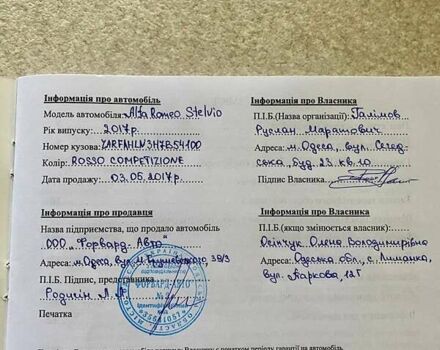 Інформація про автомобіль
Модель автомобіля: Alfa Romeo Stelvio
Рік випуску: 2017р.
Номер кузова: ZARFAHLN3H7B54100
Колір: ROSSO COMPETIZIONE
Дата продажу: 03.05.2017р.
Інформація про Власника
П.І.Б.(Назва організації): Галімов
Руслан Маратович
Адреса: м. Одеса, вул.
буд. 23 кв. 10
Підпис Власника
Інформація про продавця
Назва підприємства, що продало автомобіль
ООО "Форвард-Авто"
Адреса: м. Одеса, вул.
П.І.Б. Підпис, представника
Родчин Л. А.
Печатка
"ФОРВАРД-АВТО"
Інформація про Власника
П.І.Б.(якщо змінюється власник):
Осіпчук Олена Володимирівна
Адреса: Одеська обл., с. Лиманка,
вул. Паркова, 12Г